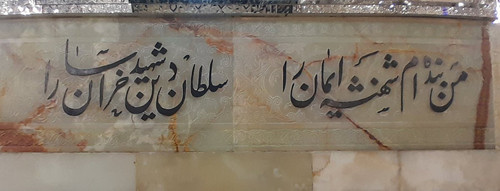 من بنده‌ام شهنشه ایمان را
سلطان دین شهید خراسان را